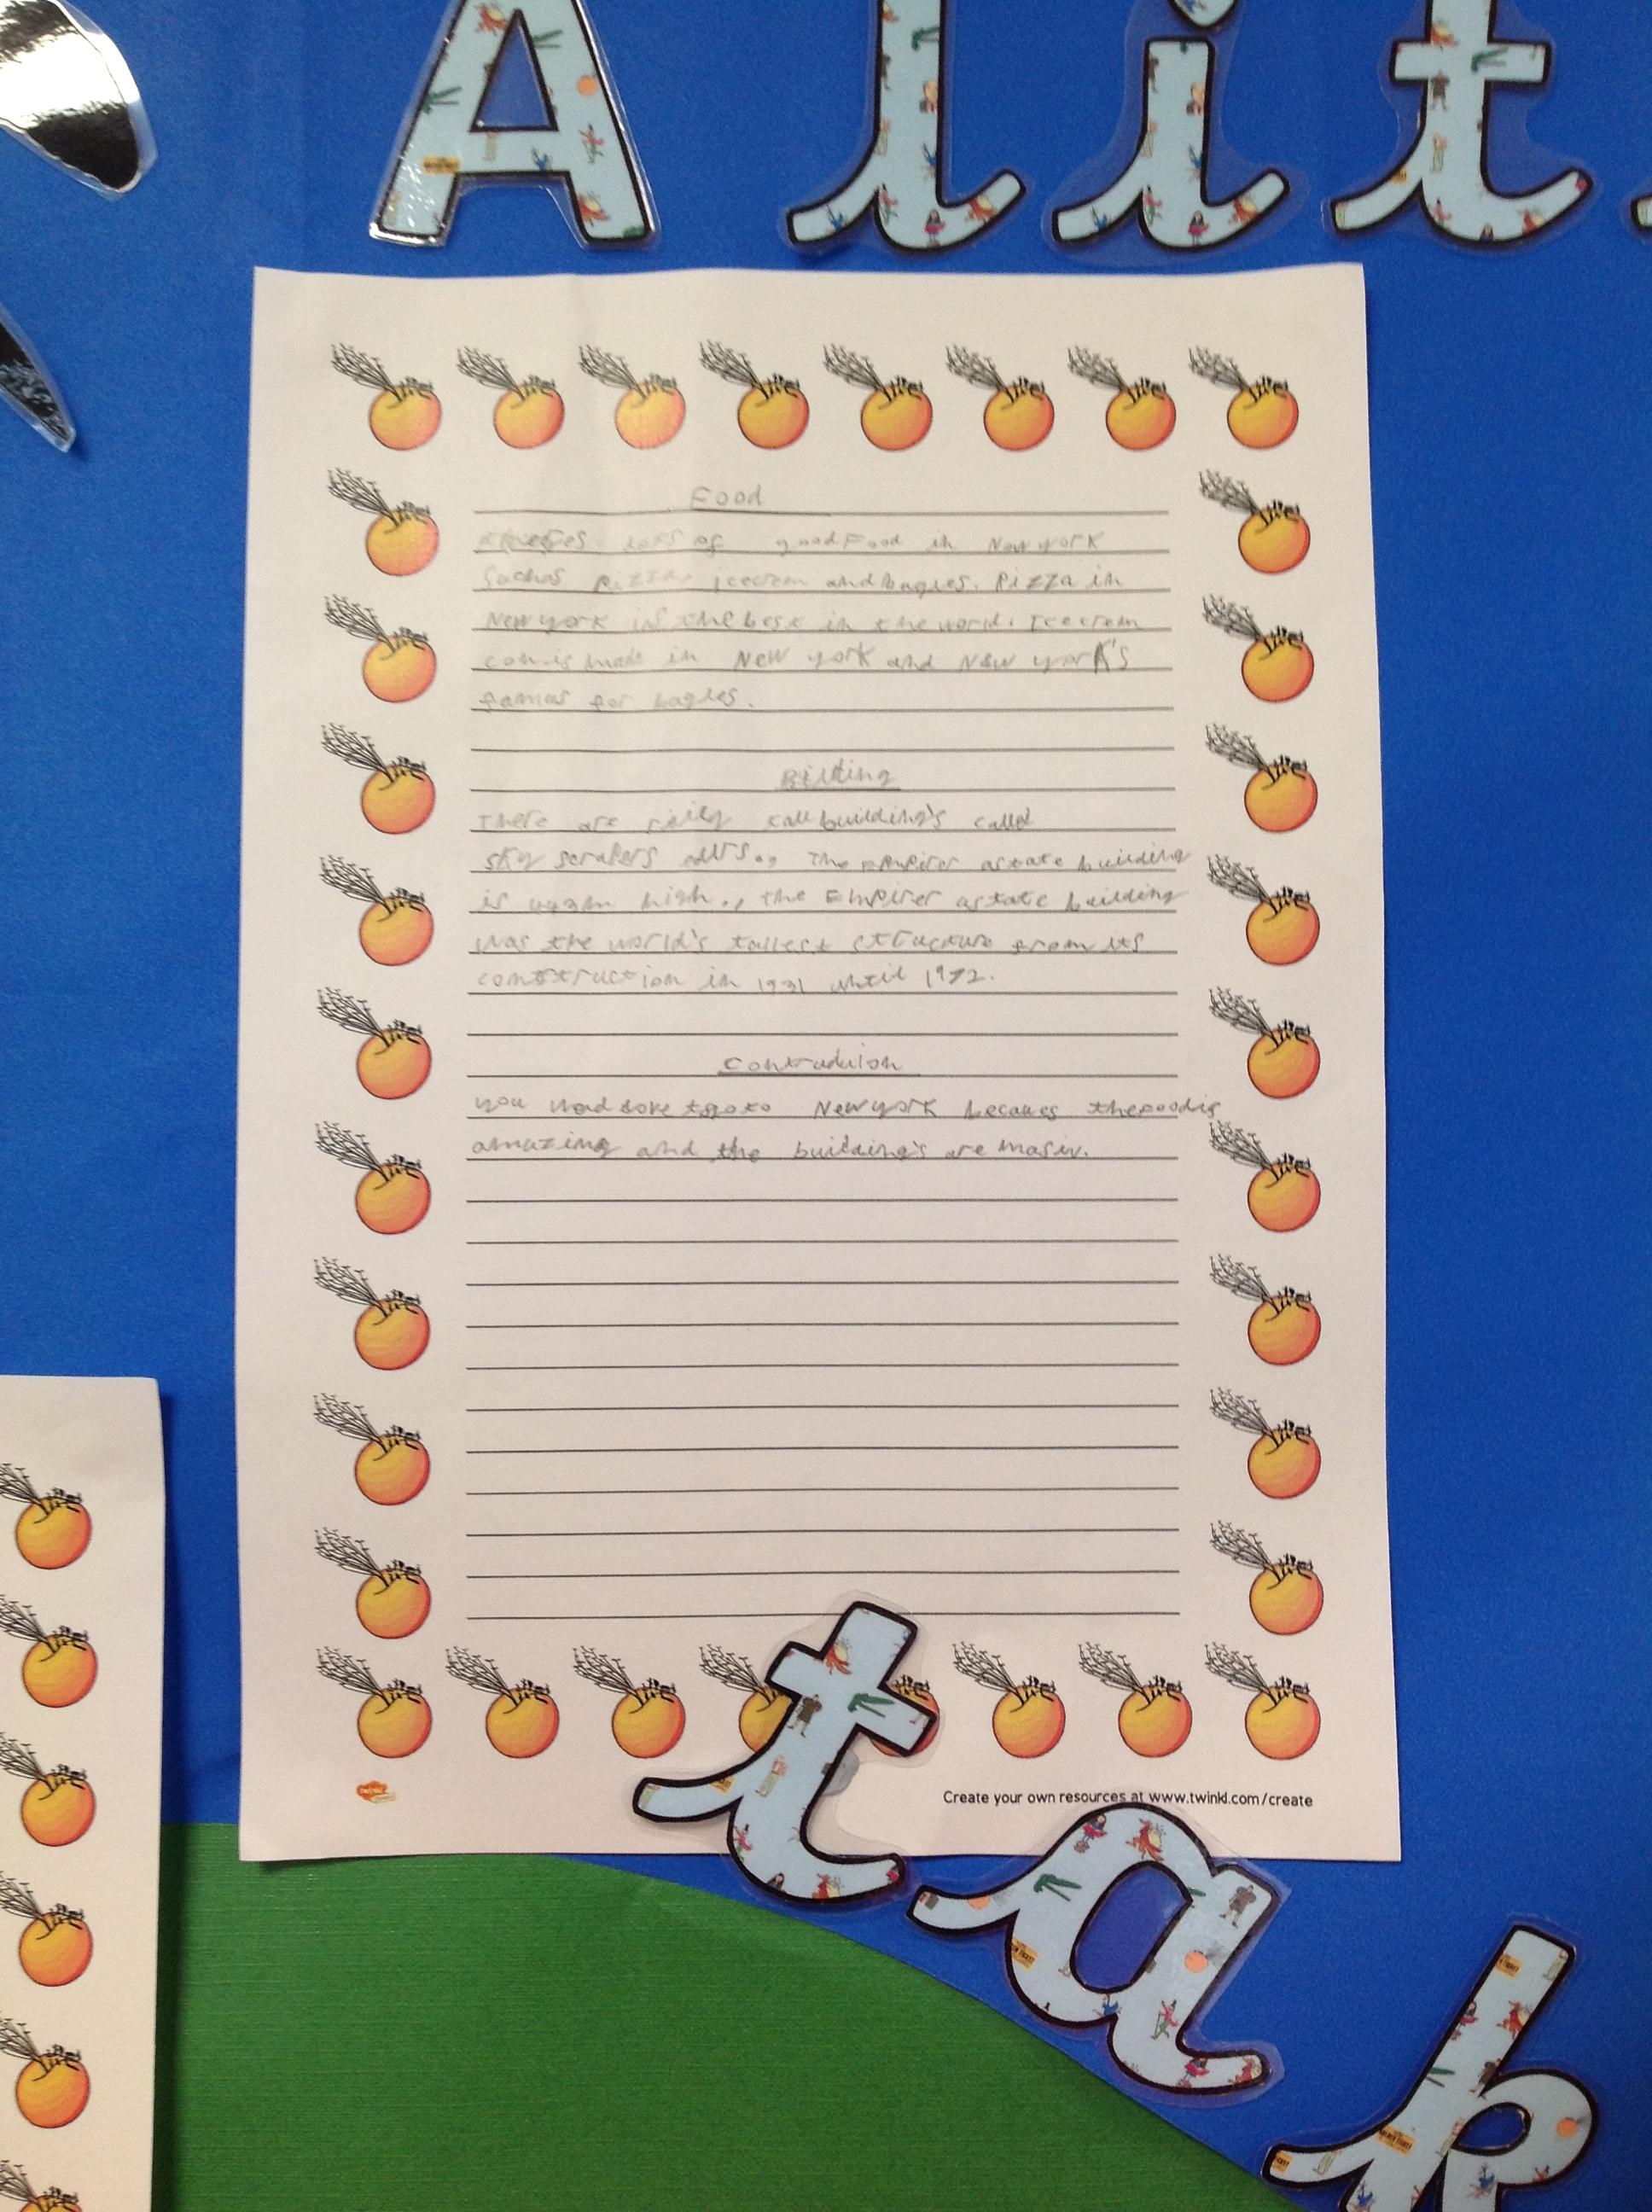 A lit
Food
lots of good Food in New york
Suchas Pizza, icecrem and bagles. Pizza in
New york is the best in the world. Icecrem
con is made in New york and New york's
famus for bagles.
Bilding
There are rielly tall building's called
sky scrapers The Empirer astate building
is high., the Empirer astate building
was the world's tallest structure from its
conststruction in 1931 until 1972.
You to New york becaues thefoodis
amazing and the building's are masiv.
Create your own resources at www.twinkl.com/create
tak